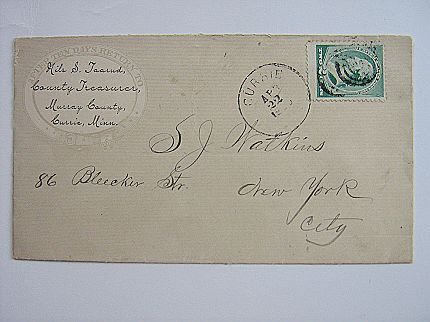 AFTER TEN DAYS RETURN TO
Nels S. Taarud,
County Treasurer,
Murray County,
Currie, Minn.
CURRIE
APR
22
S J Watkins
86 Bleecker Str.
New York
City